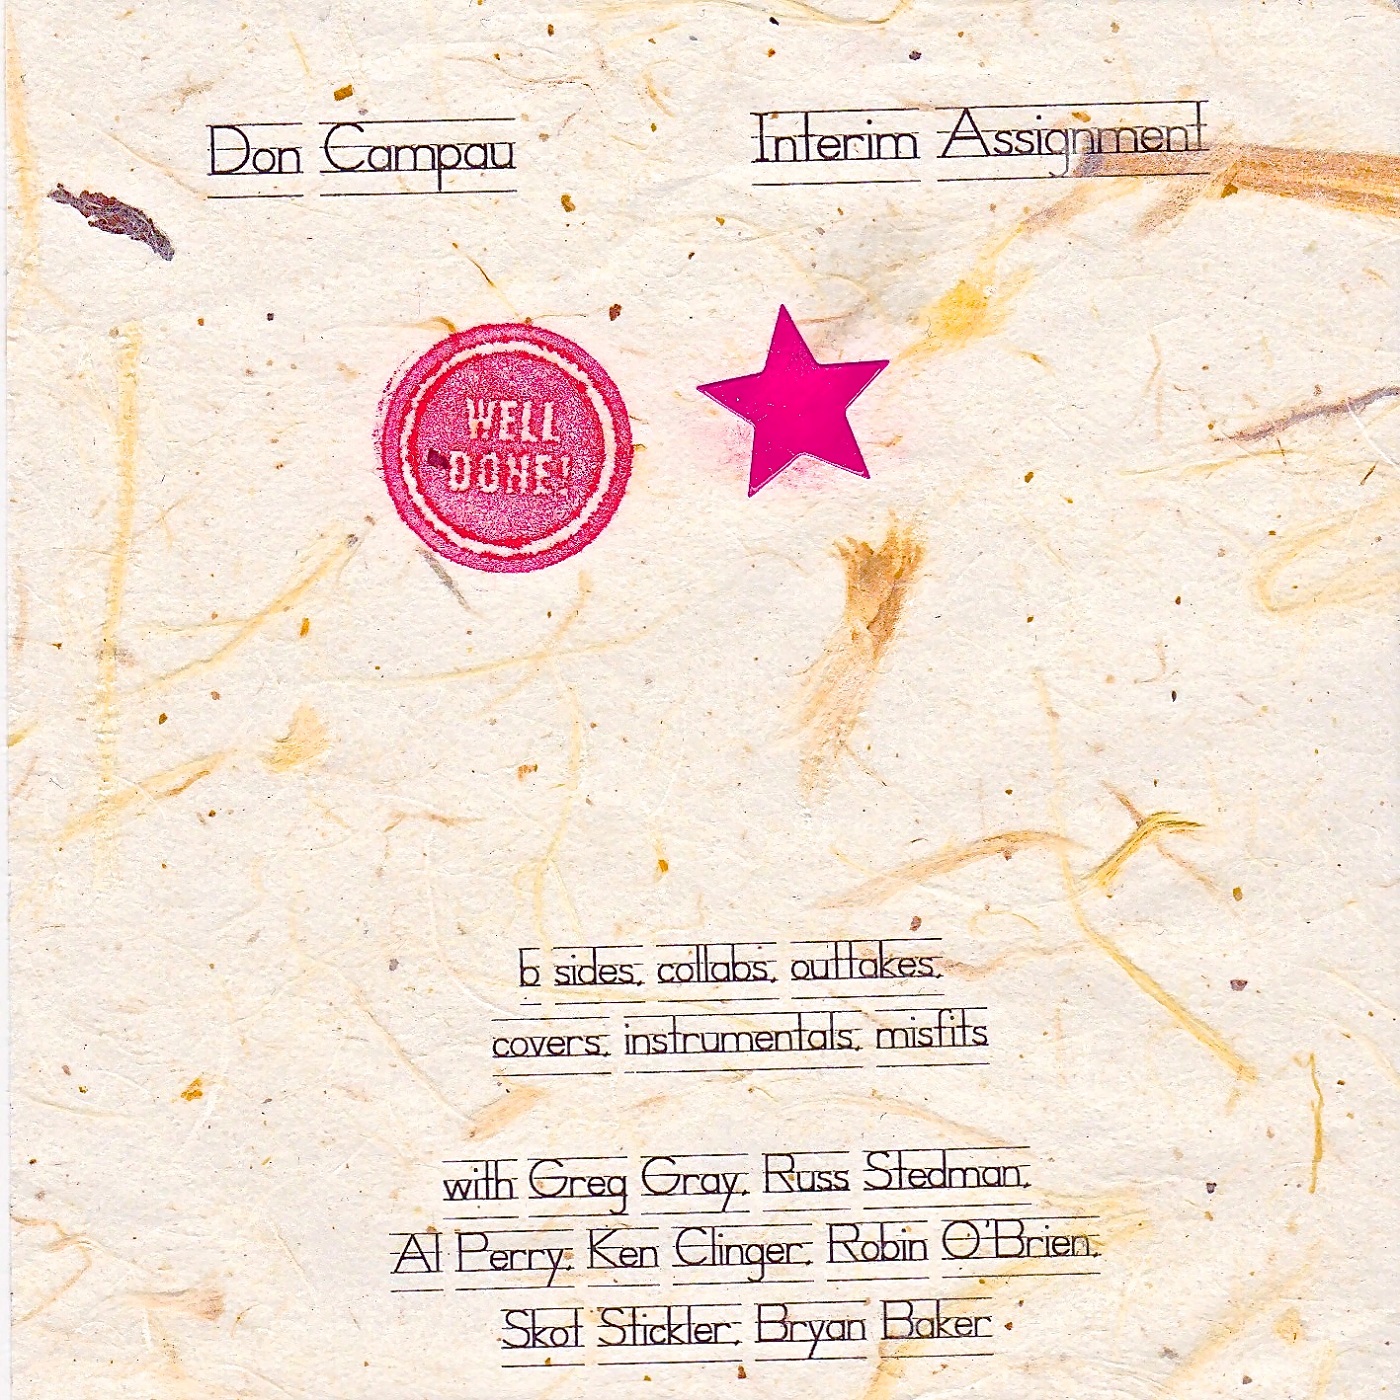 Don Campau
Interim Assignment
WELL
DONE!
b sides, collabs, outtakes,
covers, instrumentals, misfits
with Greg Gray, Russ Stedman,
Al Perry, Ken Clinger, Robin O'Brien,
Skot Stickler, Bryan Baker